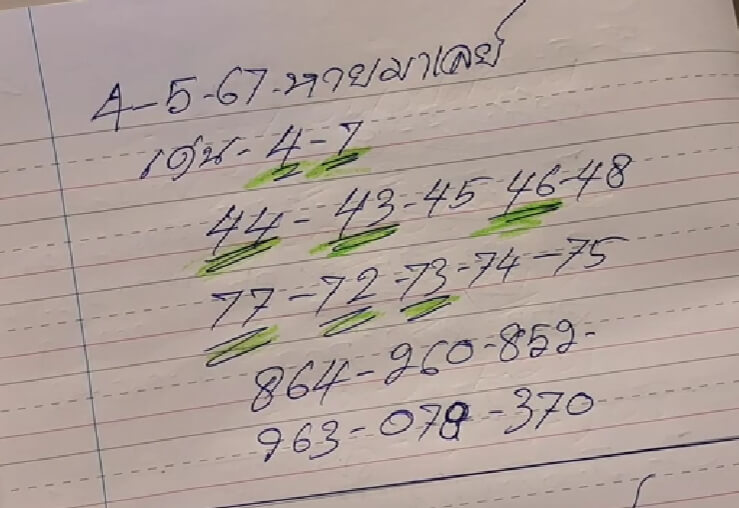 4-5-67-หวยมาเลย์
เด่น-4-7
44-43-45-46-48
77-72-73-74-75
864-260-852-
963-078-370